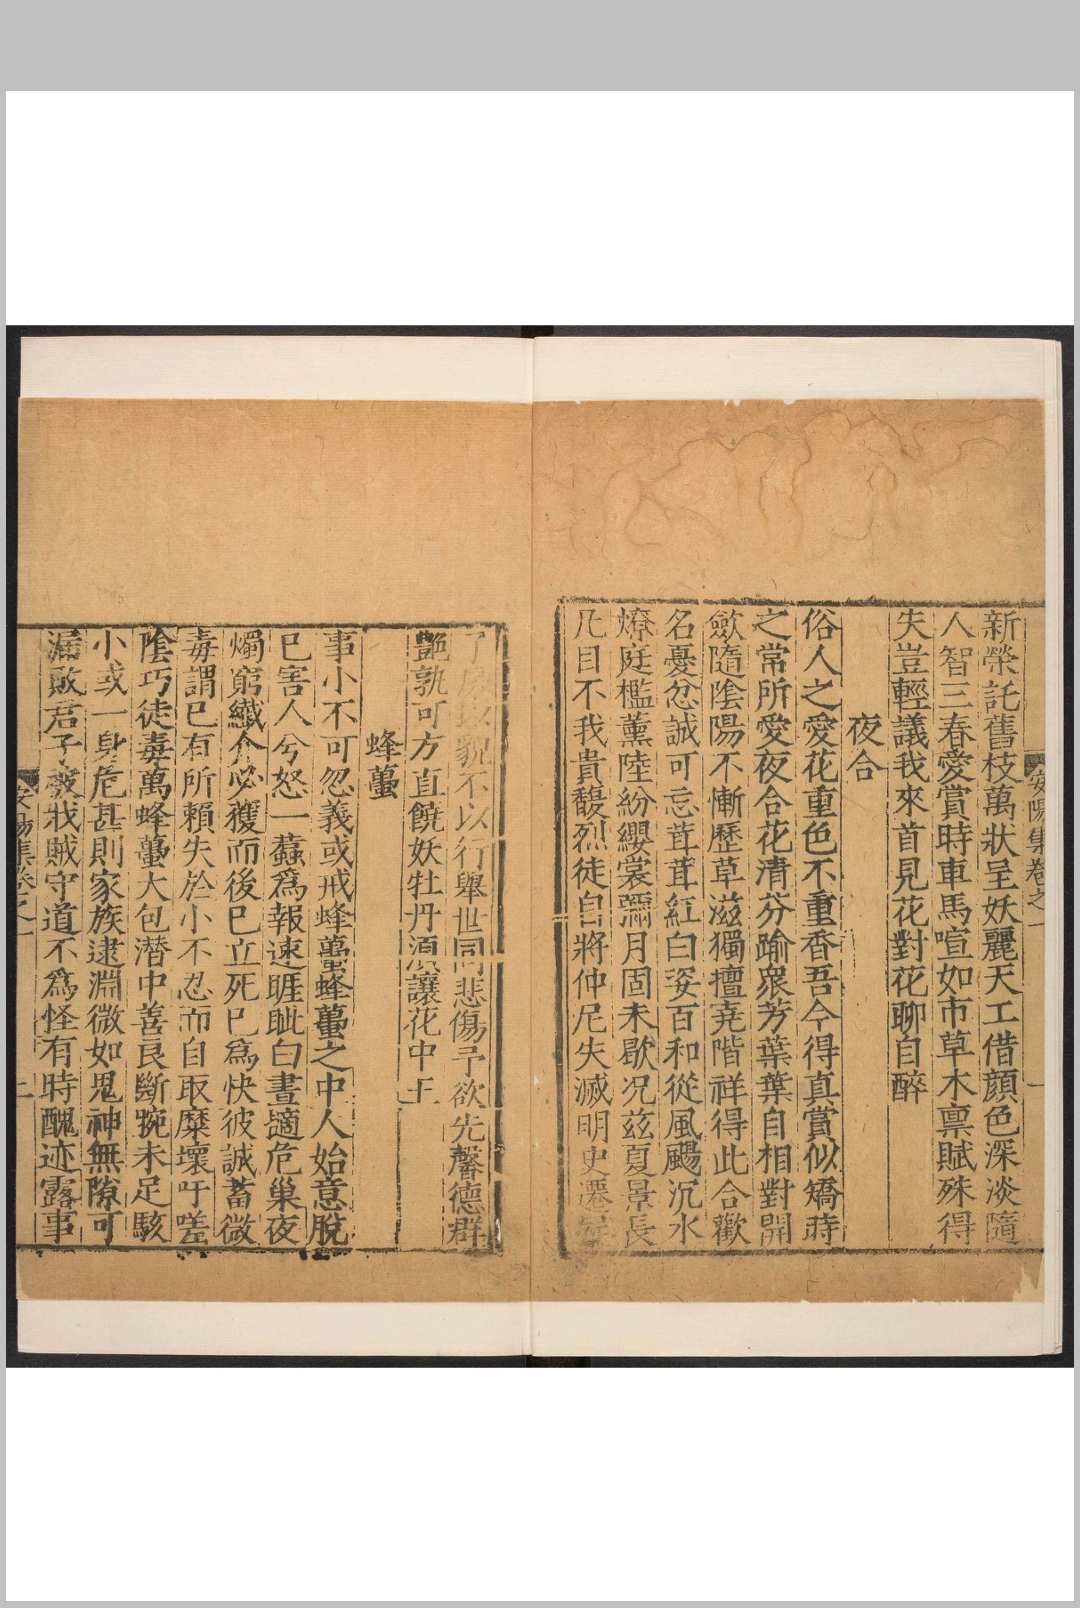 安陽集卷之一
新榮託舊枝萬狀呈妖麗天工借顏色深淡隨
人智三春愛賞時車馬喧如市草木禀賦殊得
失豈輕議我來首見花對花聊自醉
夜合
俗人之愛花重色不重香吾今得真賞似矯時
之常所愛夜合花清芬踰衆芳葉葉自相對開
歛隨隂陽不慚歷草滋獨擅堯階祥得此合歡
名憂忿誠可忘茸茸紅白姿百和從風颺沉水
燎庭檻薰陸紛纓裳彌月固未歇况兹夏景長
凢目不我貴馥烈徒自將仲尼失滅明史遷
以貌不以行舉世同悲傷予欲先馨德群
艷孰可方直饒妖牡丹須讓花中王
蜂蠆
事小不可忽義或戒蜂蠆蜂蠆之中人始意脫
巳害人兮怒一蠚爲報速睚眦白晝適危巢夜
燭窮纎介必獲而後巳立死巳爲快彼誠蓄微
毒謂巳有所賴失於小不忍而自取糜壞吁嗟
隂巧徒毒萬蜂蠆大包潜中善良斷㧳未足駭
小或一身危甚則家族逮淵微如鬼神無隙可
漏敗君子被戕賊守道不爲怪有時醜迹露事
安陽集卷之一